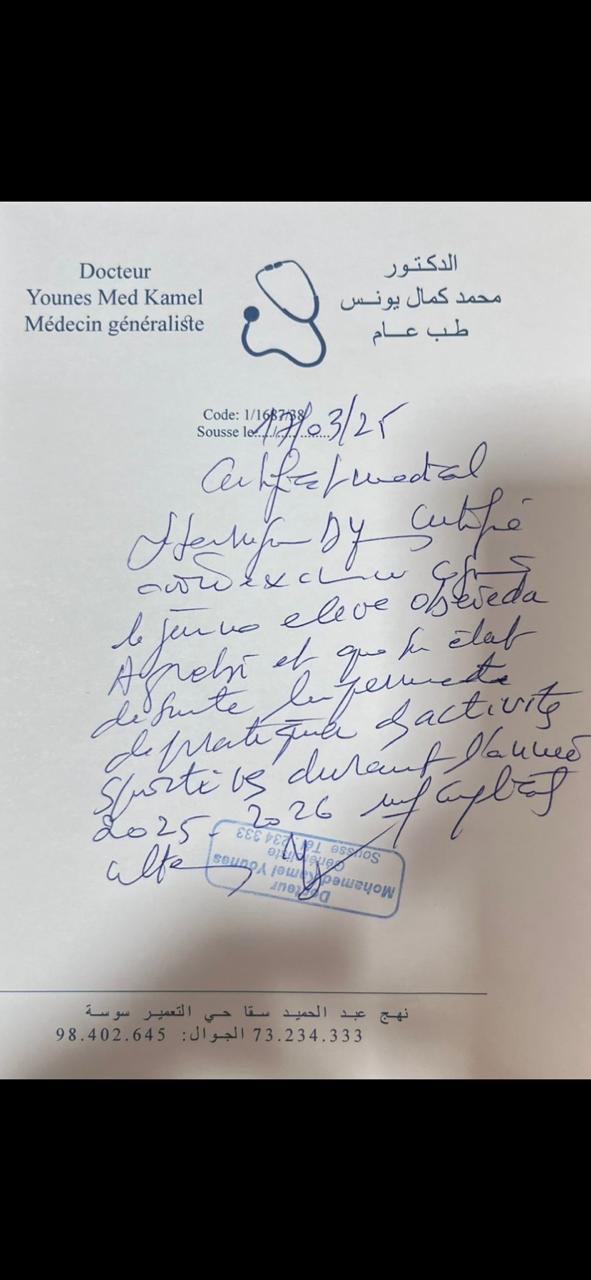 Docteur
Younes Med Kamel
Médecin généraliste
الدكتور
محمد كمال يونس
طب عام
Code: 1/1687/38
Sousse le 17/03/25
Certificat medical
certifié
avoir examiné
le jeune eleve
et que son état
de sante lui permet
de pratiquer d'activités
sportives durant l'année
2025-2026 sauf
Docteur
Mohamed Kamel Younes
Généraliste
Sousse Tél. 234 333
نهج عبد الحميد سقا حي التعمير سوسة
73.234.333 الجوال: 98.402.645